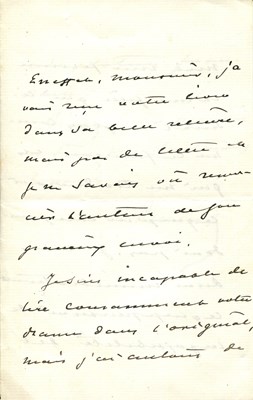 En effet, monsieur, j'a
vais reçu votre livre
dans sa belle reliure,
mais pas de lettre et
je ne savais où remer
cier l'auteur de son
gracieux envoi.
Je suis incapable de
lire couramment votre
drame dans l'original,
mais j'ai autour de